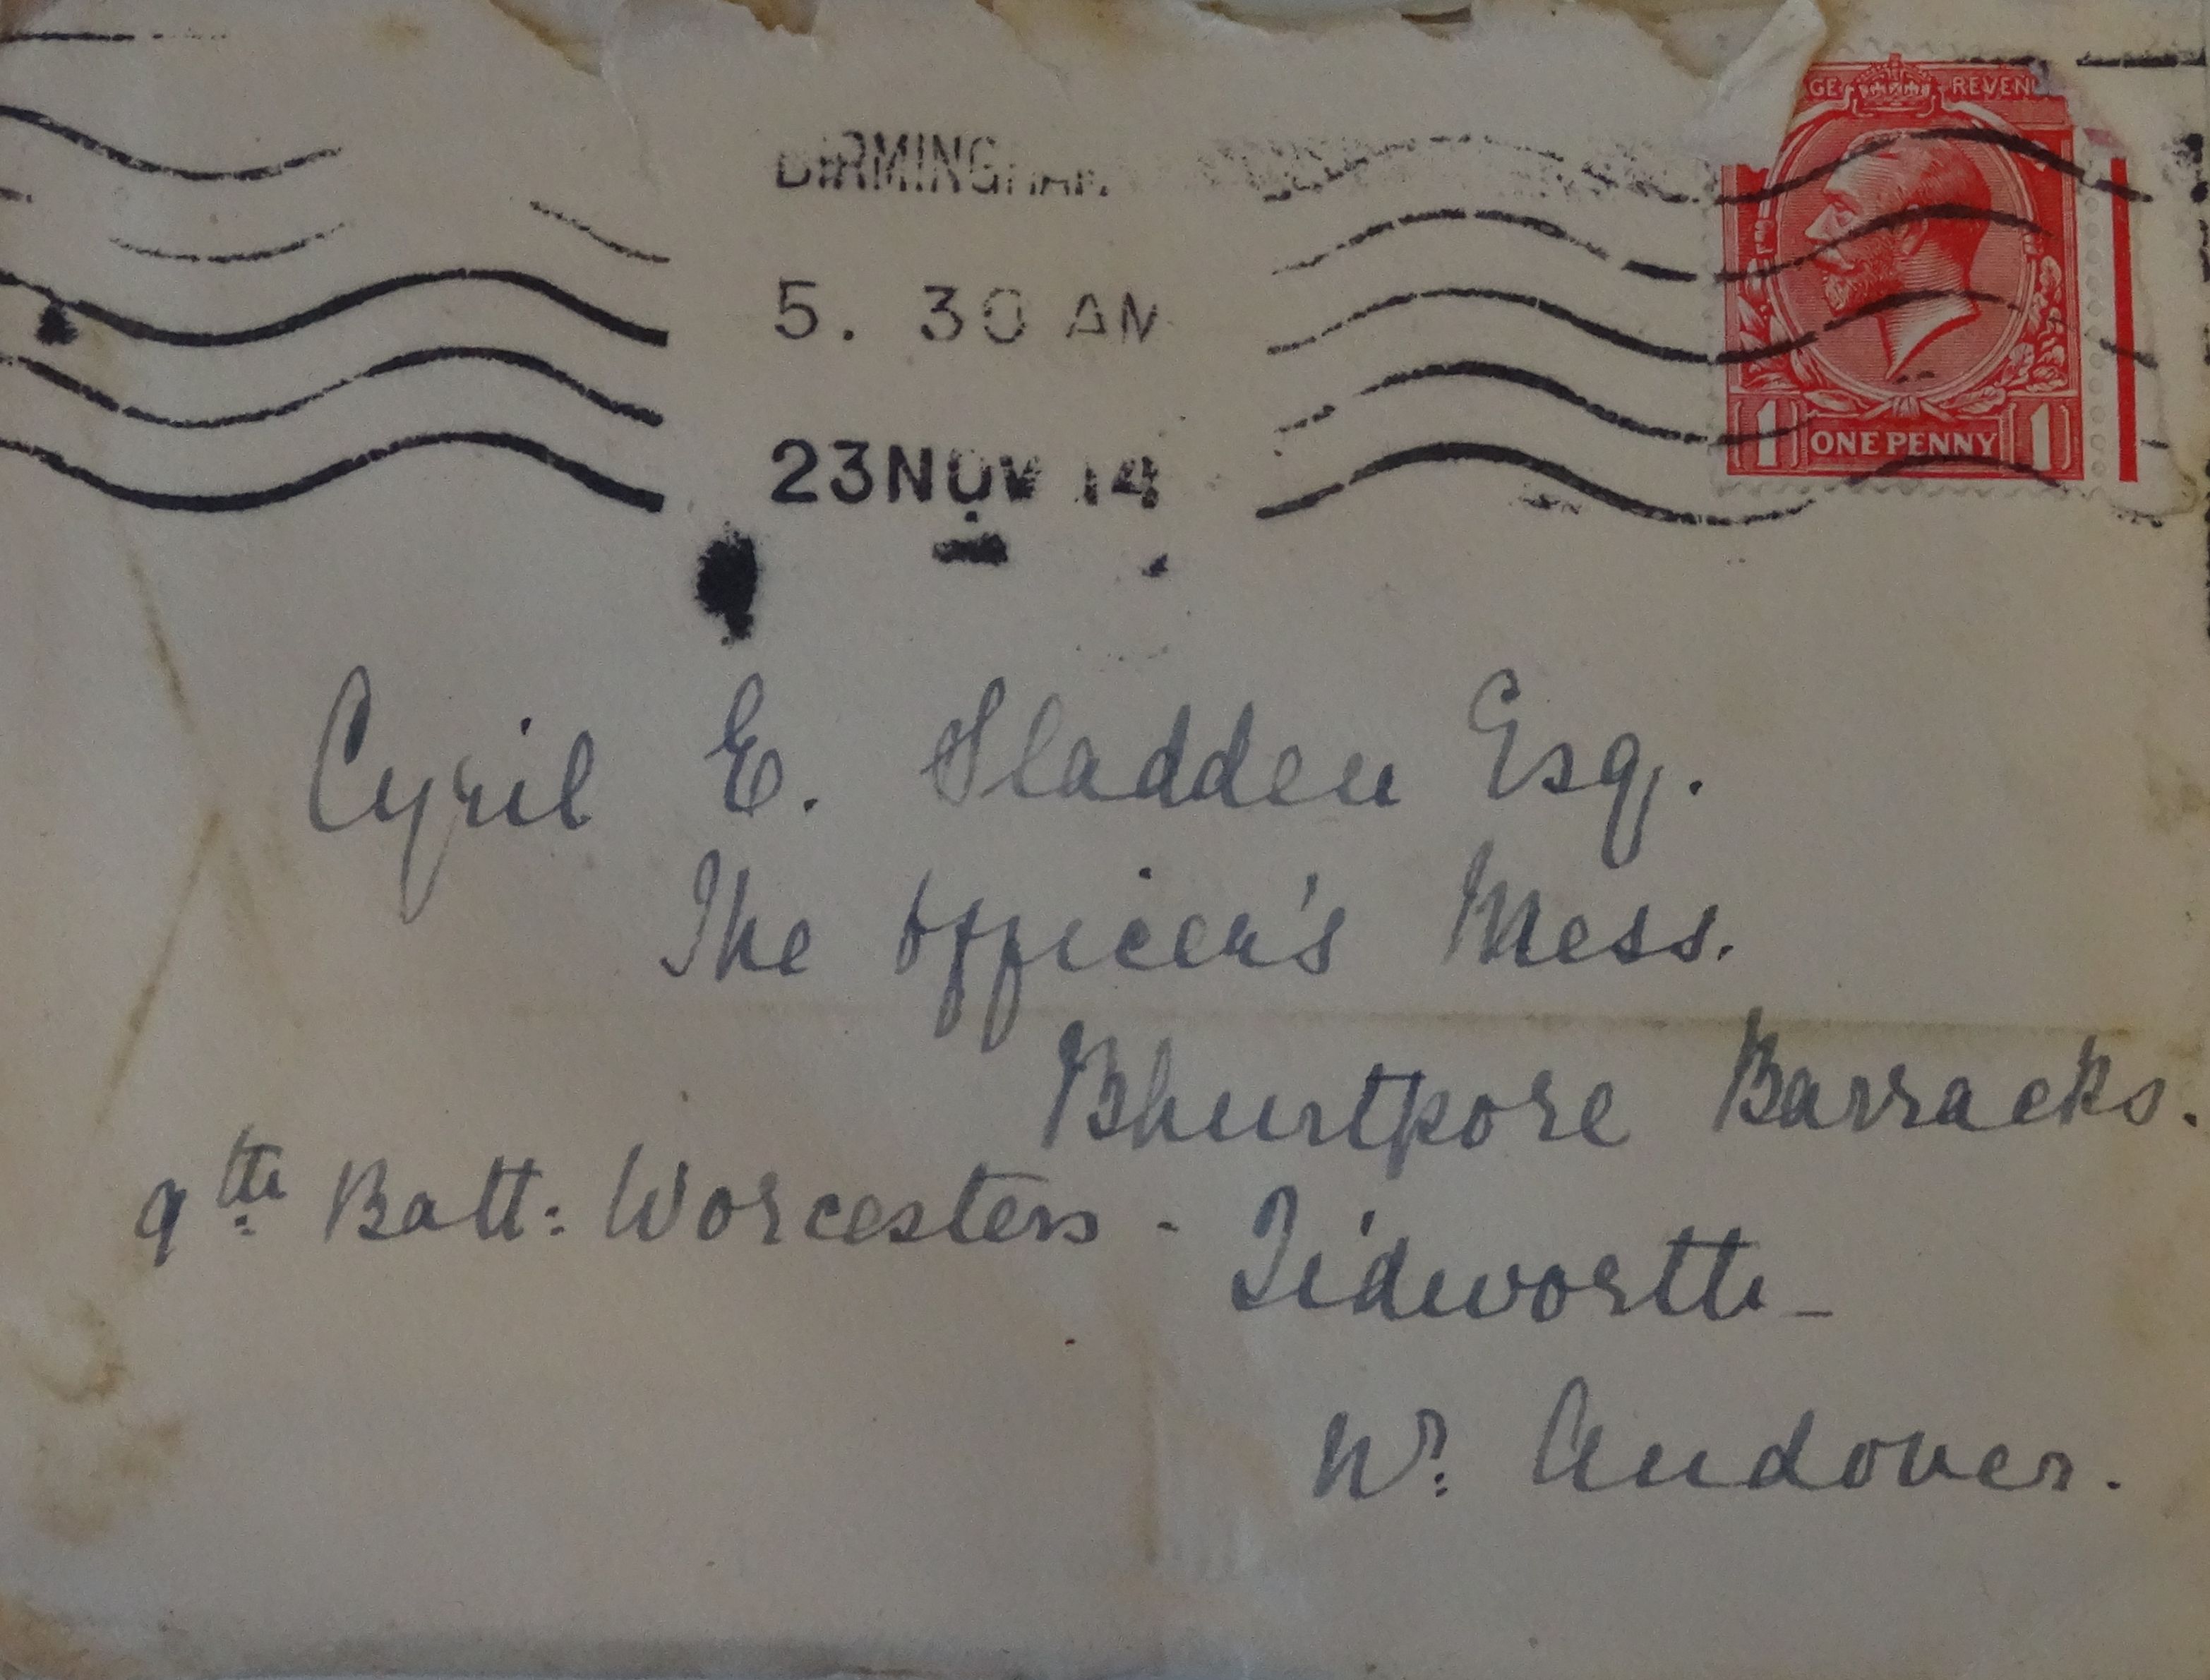 GE REVENU
BIRMINGHAM
5. 30 AM
23 NOV 14
1 ONE PENNY 1
Cyril E. Sladden Esq.
The Officer's Mess.
Bhurtpore Barracks.
9th Batt: Worcesters -
Tidworth -
Nr. Andover.